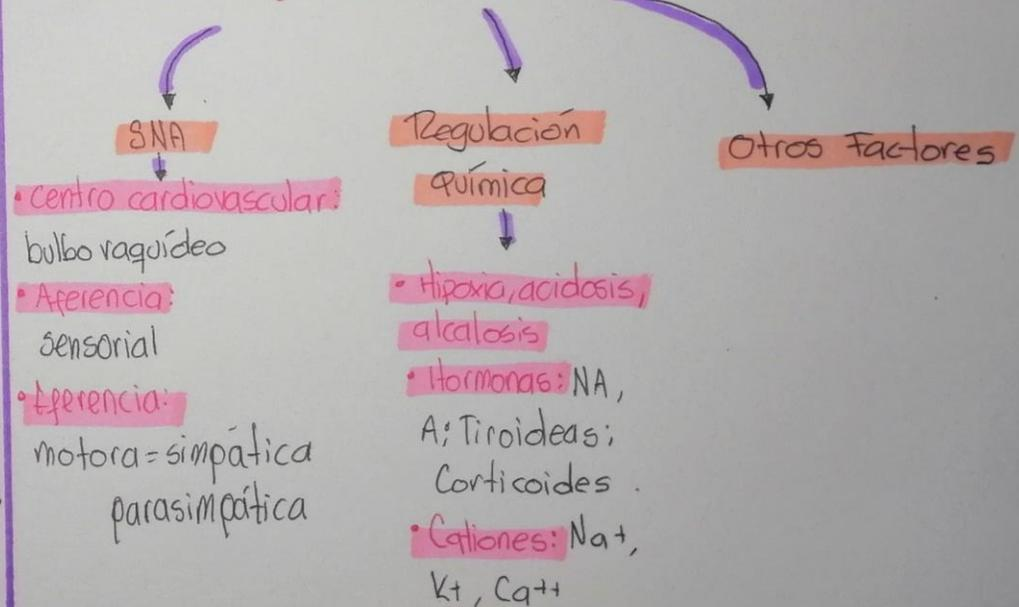 SNA
• Centro cardiovascular:
bulbo raquídeo
• Aferencia:
sensorial
• Eferencia:
motora = simpática
parasimpática
Regulación
Química
• Hipoxia, acidosis,
alcalosis
• Hormonas: NA,
A; Tiroideas;
Corticoides.
• Cationes: Na+,
K+, Ca++
Otros Factores